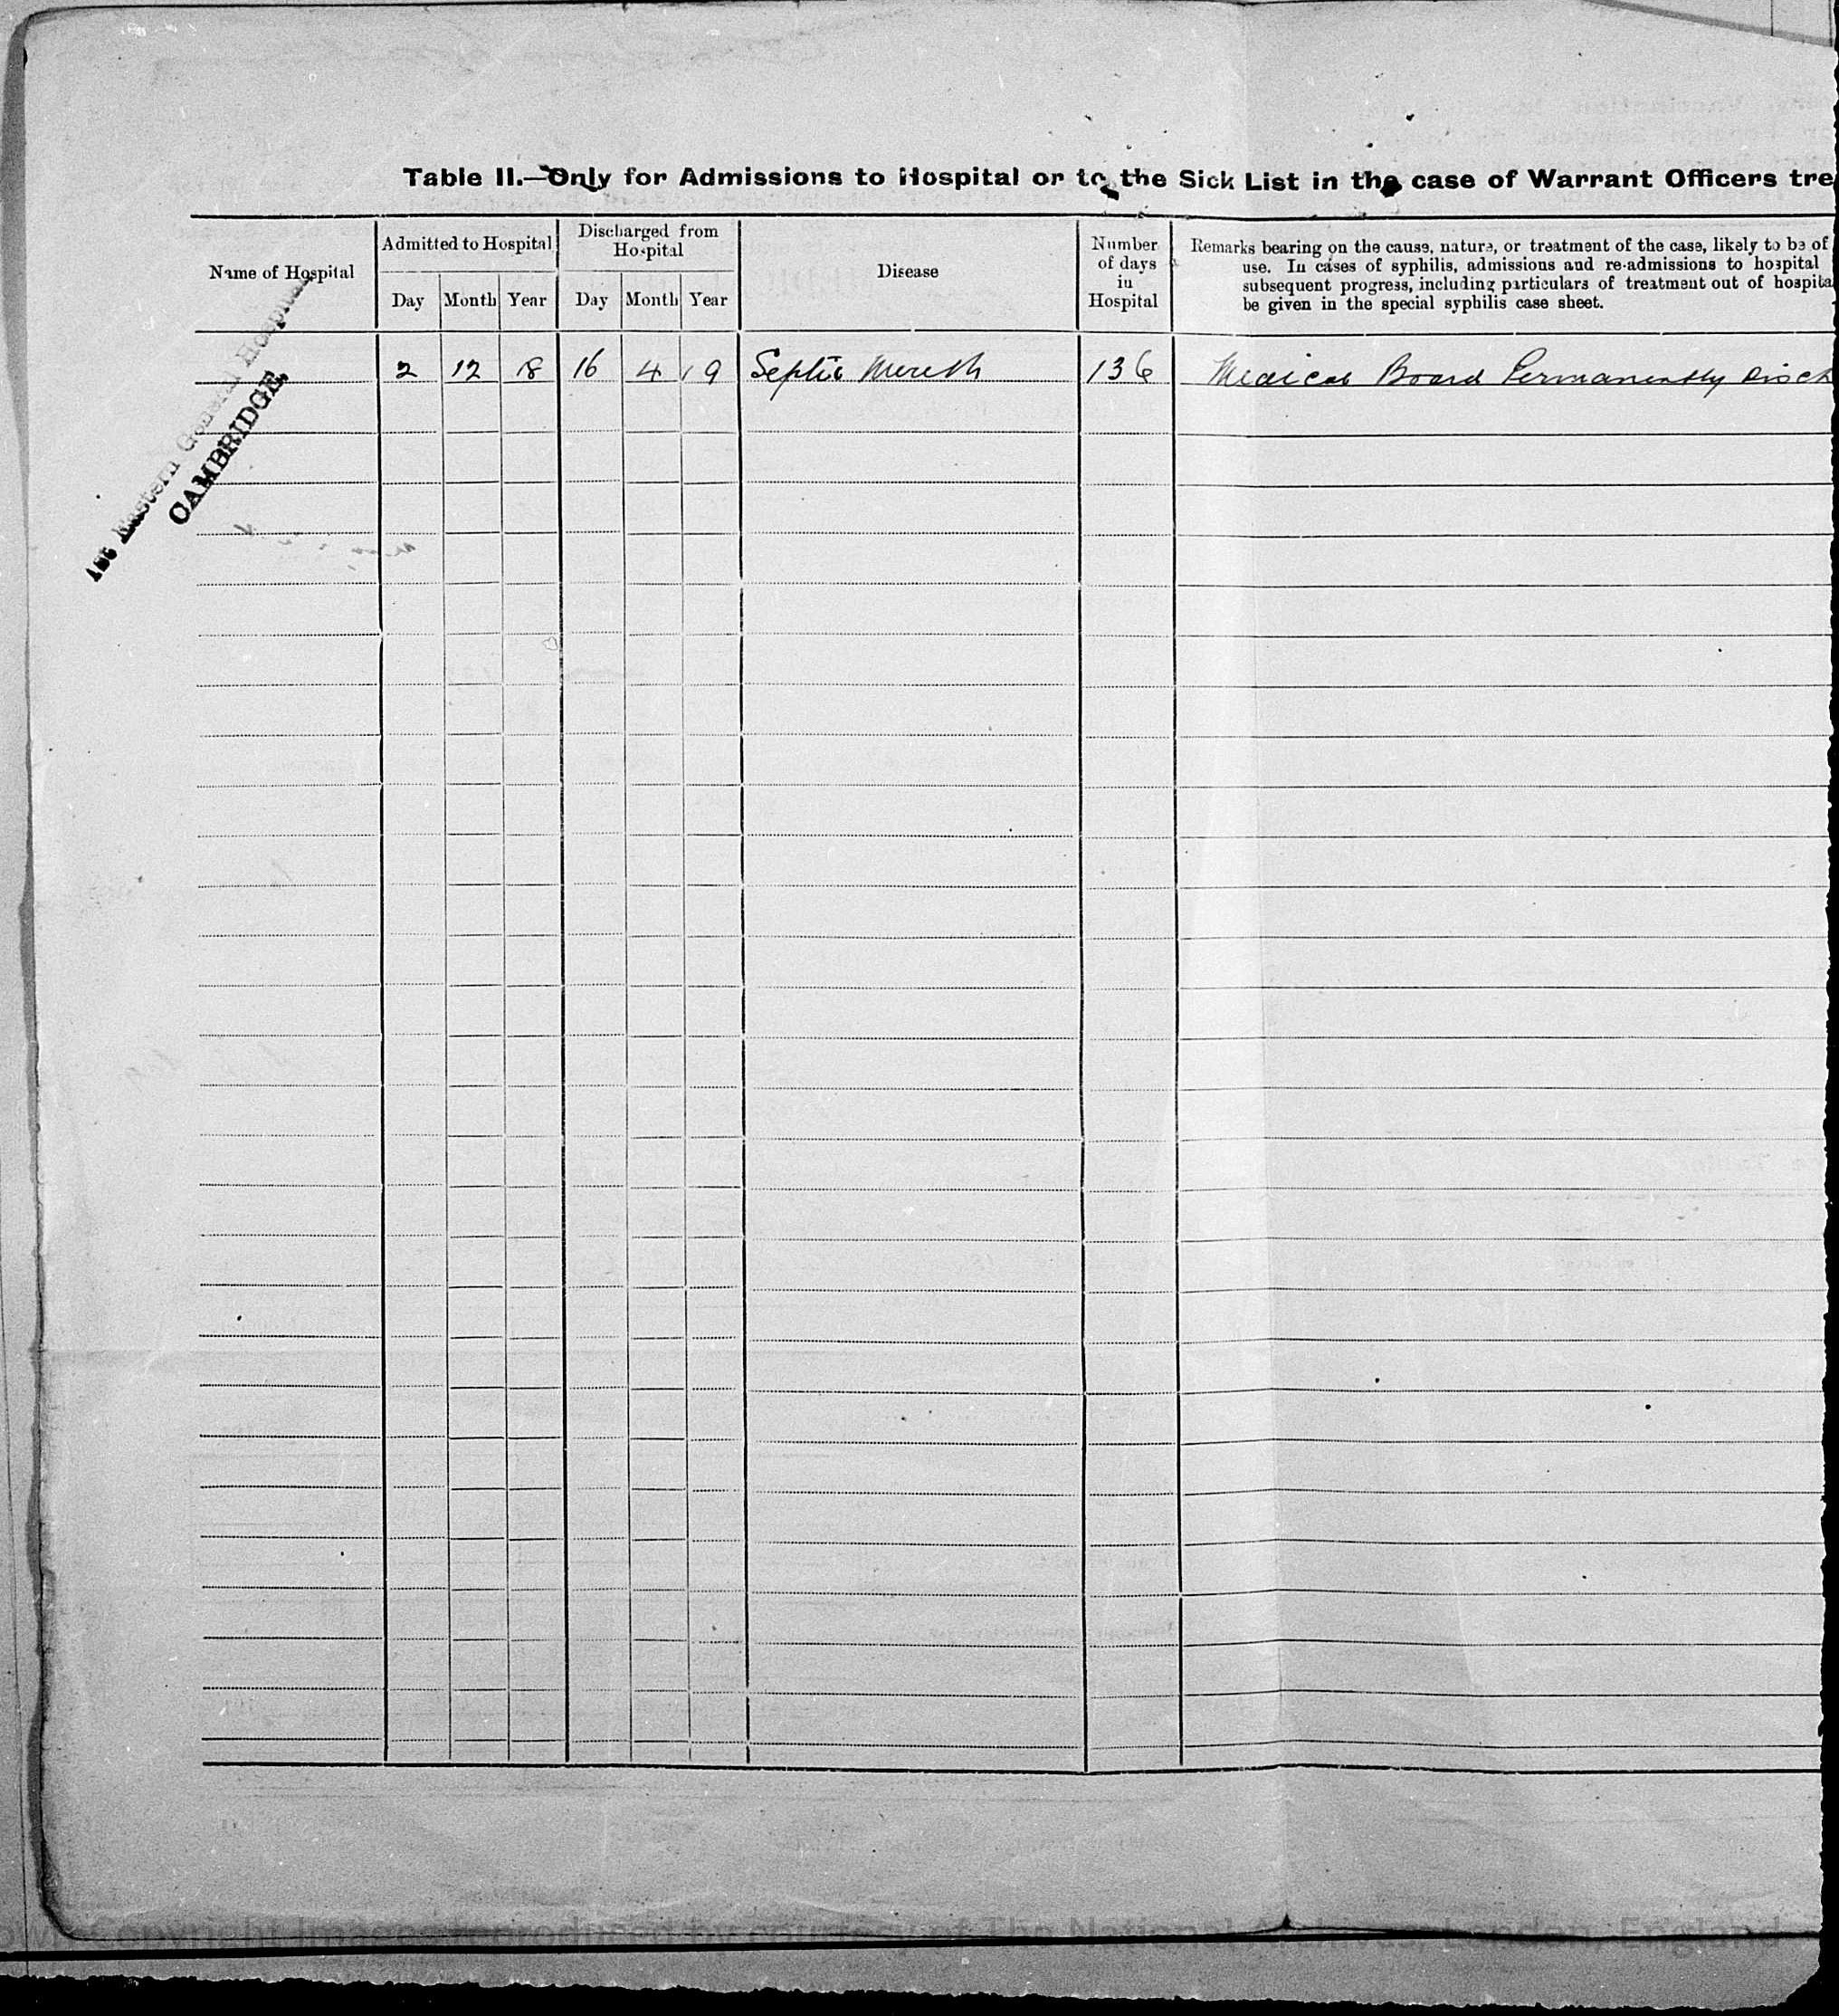 Table II.—Only for Admissions to Hospital or to the Sick List in the case of Warrant Officers tre
Name of Hospital
Admitted to Hospital
Day Month Year
Discharged from
Hospital
Day Month Year
Disease
Number
of days
in
Hospital
Remarks bearing on the cause, nature, or treatment of the case, likely to be of
use. In cases of syphilis, admissions and re-admissions to hospital
subsequent progress, including particulars of treatment out of hospita
be given in the special syphilis case sheet.
1st Eastern General Hospital
CAMBRIDGE.
2 12 18 16 4 19 Septic 136 Medical Board Permanently Disch
own Copyright Images reproduced by courtesy of The National Archives, London, England